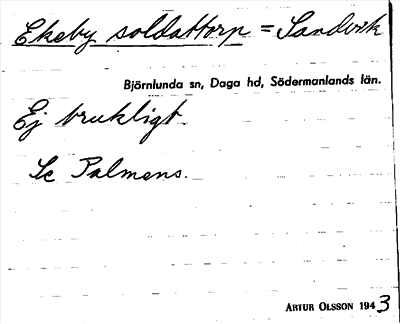 Ekeby soldattorp = Sandvik
Björnlunda sn, Daga hd, Södermanlands län.
Ej brukligt.
Se Palmens.
ARTUR OLSSON 1943